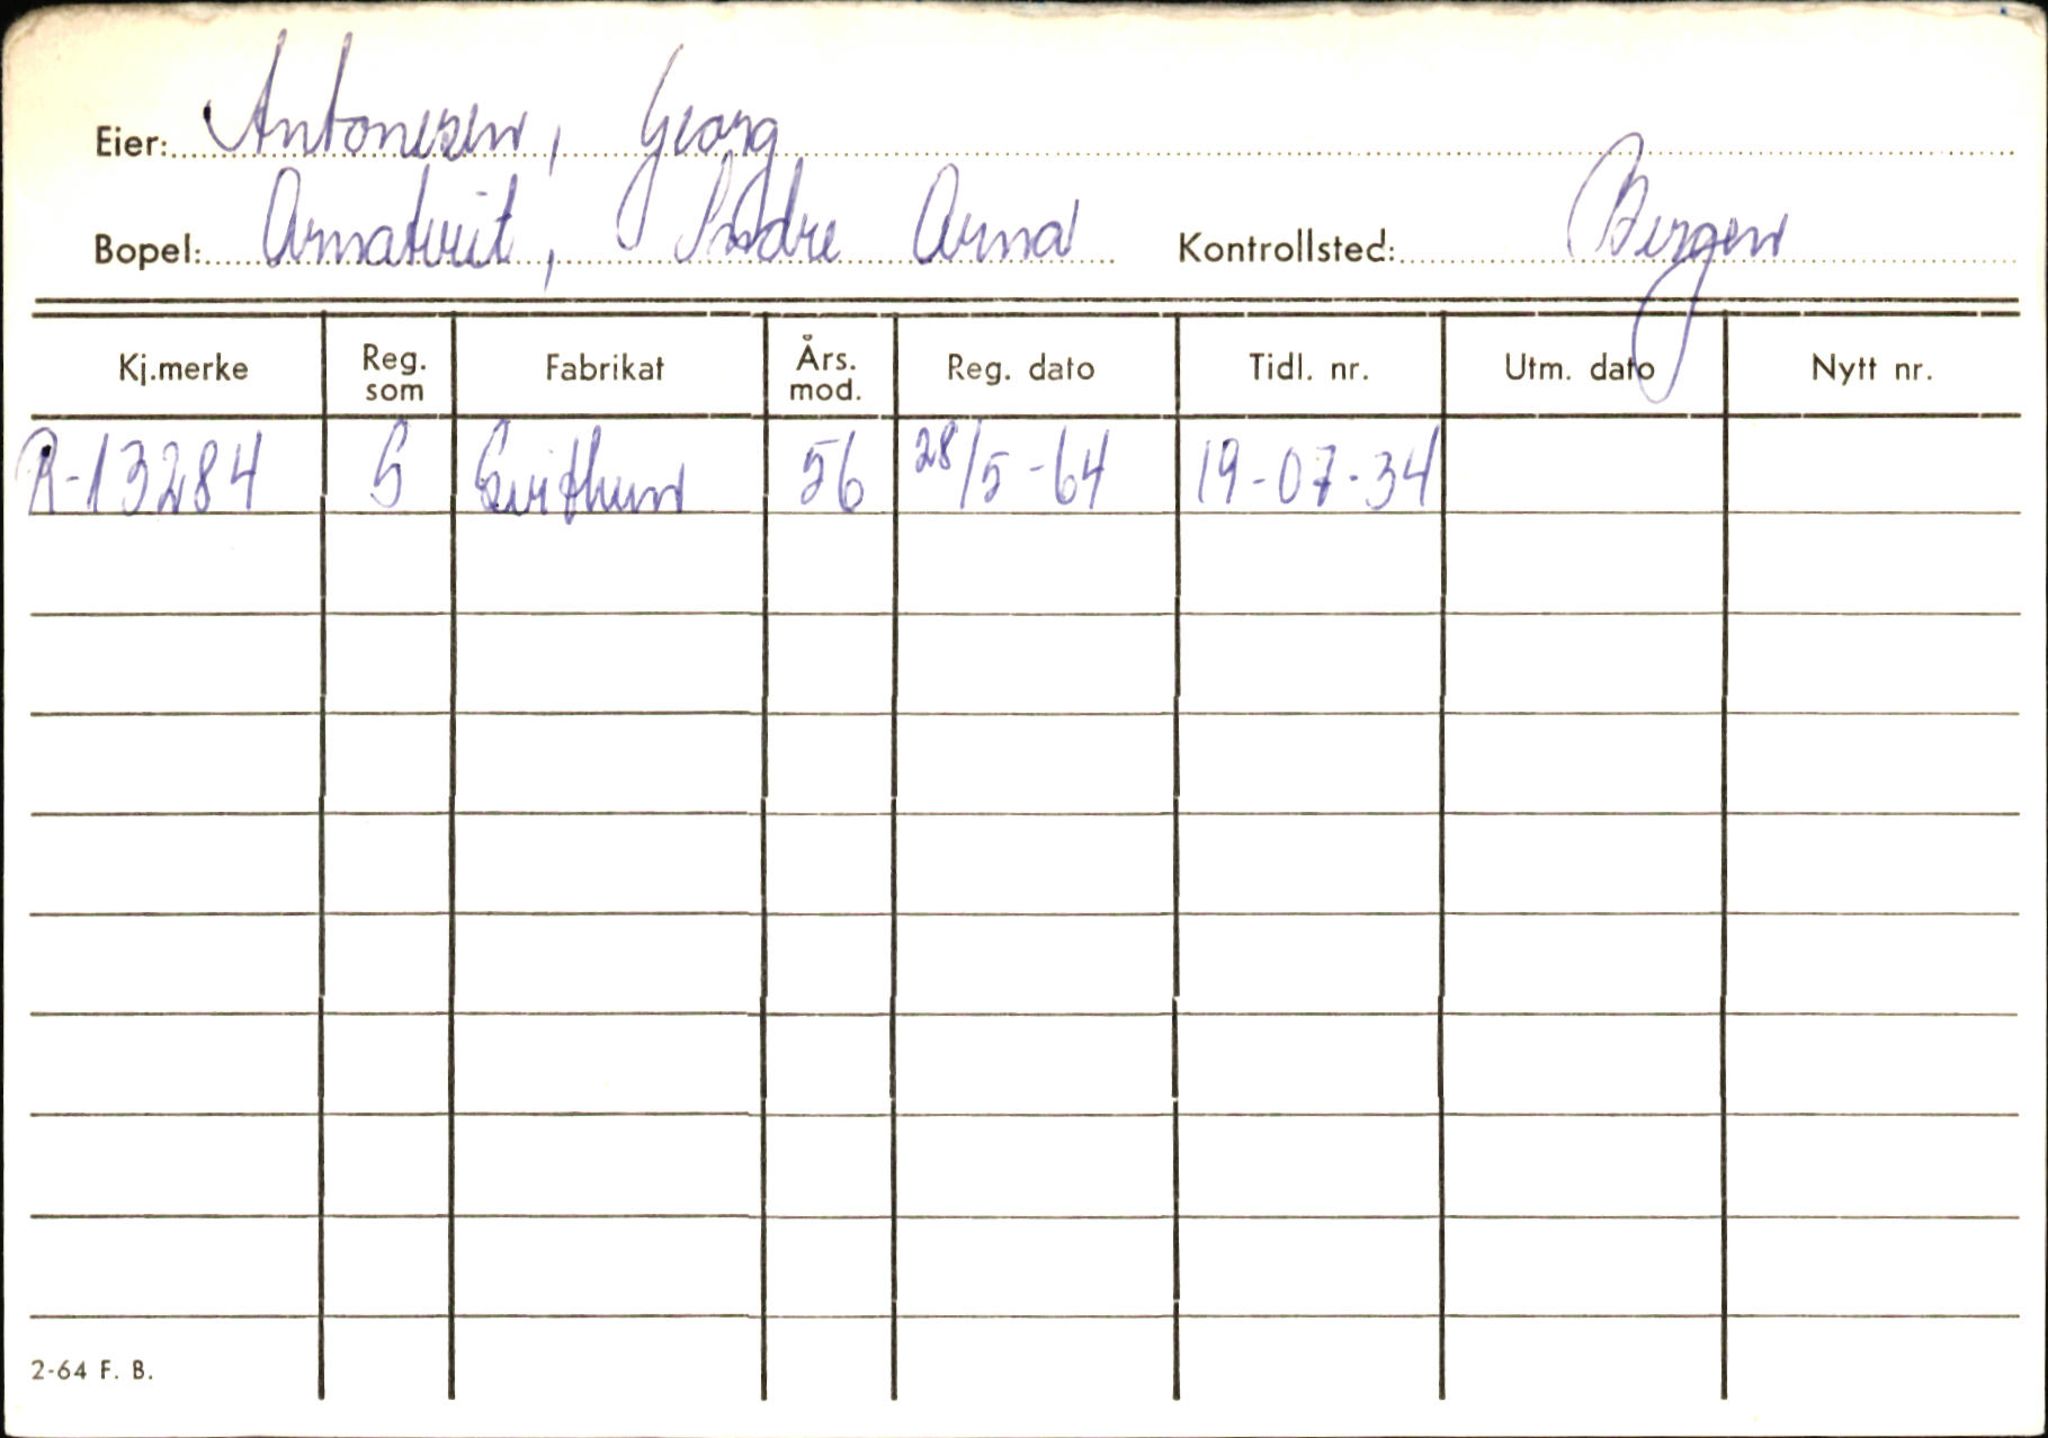 Eier: Antonesen, Georg
Bopel: Arnatveit, Indre Arna Kontrollsted: Bergen
Kj.merke Reg. som Fabrikat Års. mod. Reg. dato Tidl. nr. Utm. dato Nytt nr.
R-13284 S Svithun 56 28/5-64 19-07-34
2-64 F. B.